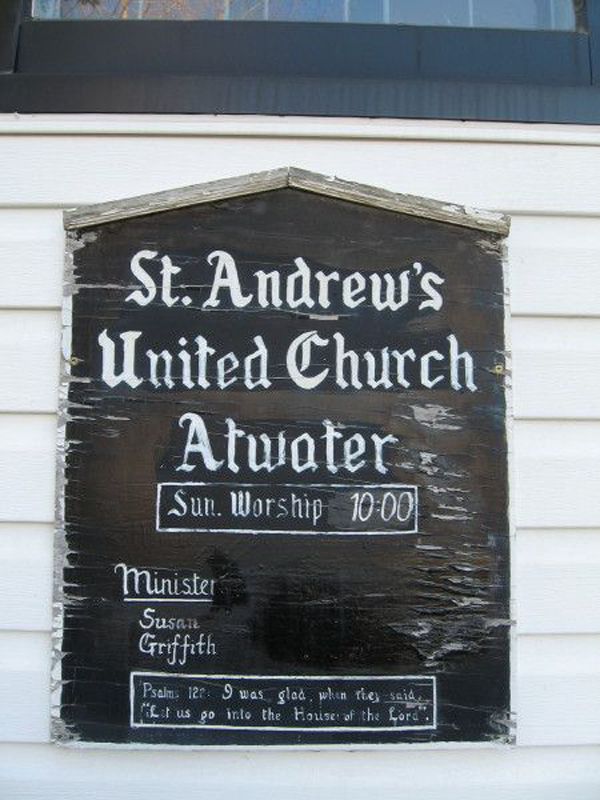 St. Andrew's
United Church
Atwater
Sun. Worship 10:00
Minister
Susan
Griffith
Psalms 122: I was glad when they said,
"Let us go into the House of the Lord".